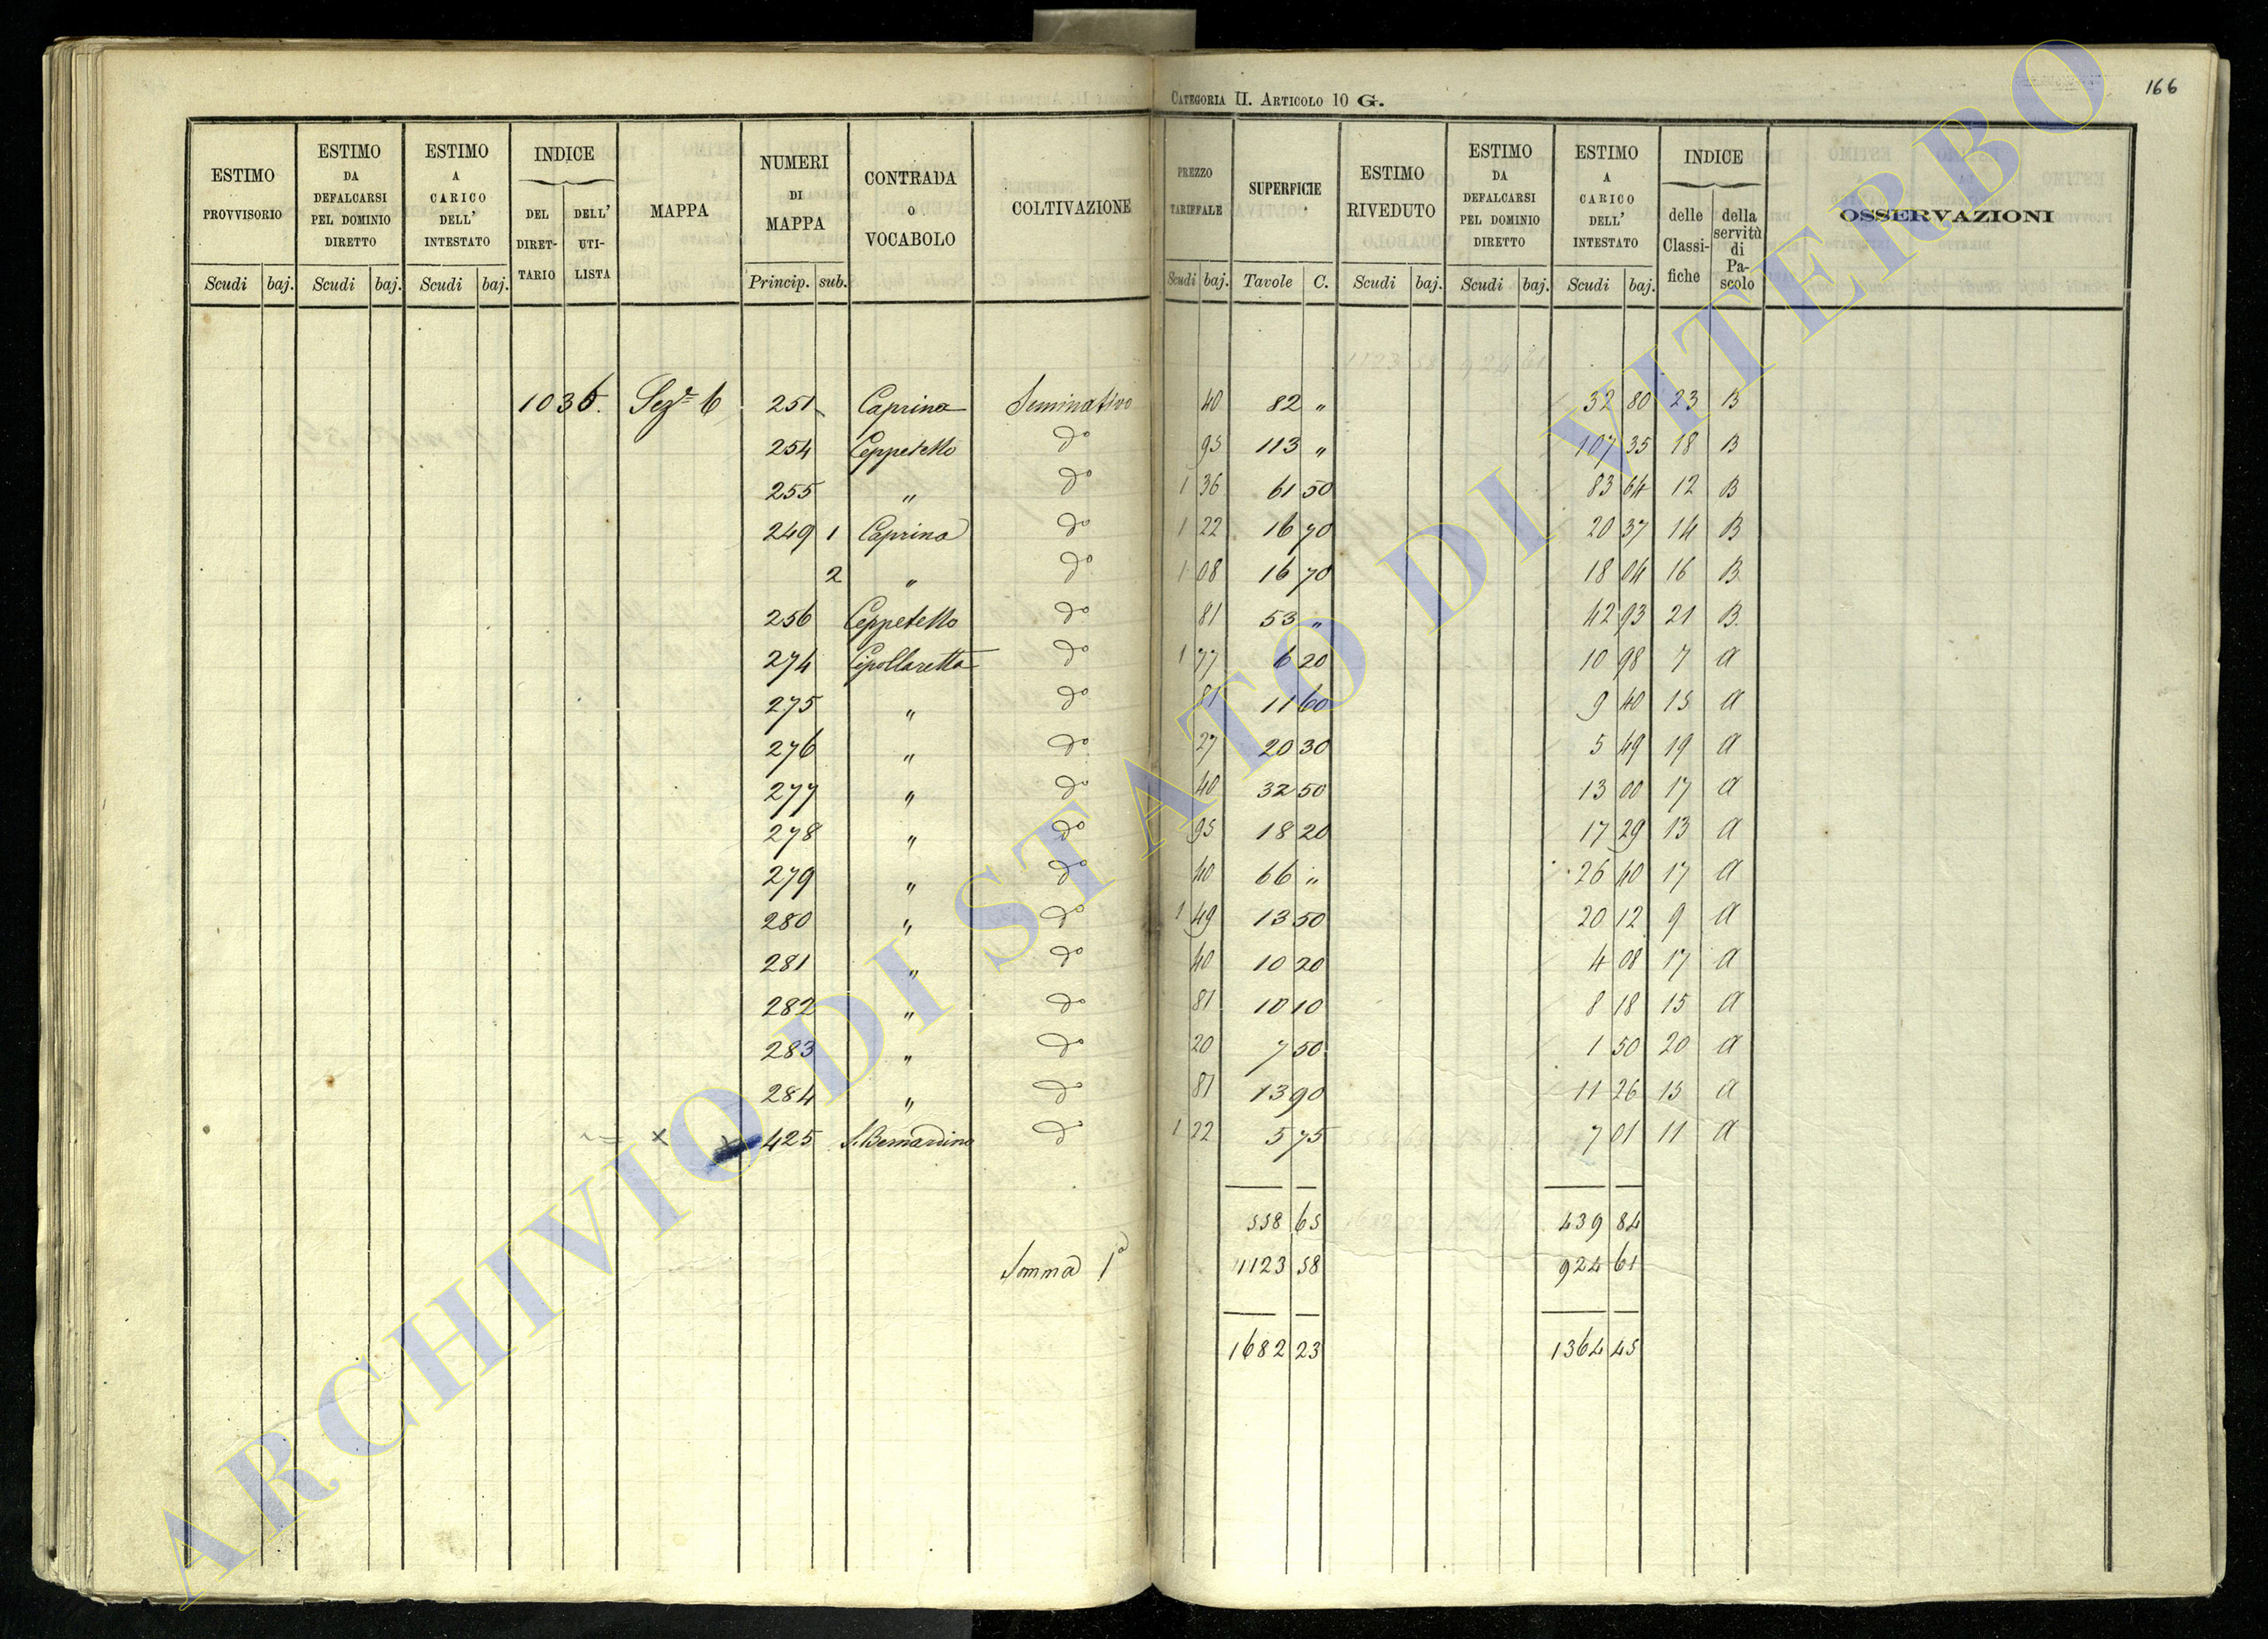 166
CATEGORIA II. ARTICOLO 10 G.
ESTIMO PROVVISORIO Scudi baj. ESTIMO DA DEFALCARSI PEL DOMINIO DIRETTO Scudi baj. ESTIMO A CARICO DELL' INTESTATO Scudi baj. INDICE DEL DIRETTARIO DELL' UTILISTA MAPPA NUMERI DI MAPPA Princip. sub. CONTRADA O VOCABOLO COLTIVAZIONE PREZZO TARIFFALE Scudi baj. SUPERFICIE Tavole C. ESTIMO RIVEDUTO Scudi baj. ESTIMO DA DEFALCARSI PEL DOMINIO DIRETTO Scudi baj. ESTIMO A CARICO DELL' INTESTATO Scudi baj. INDICE delle Classifiche della servitù di Pascolo OSSERVAZIONI
1036. Seze 6 251 Caprina Seminativo 40 82 " 32 80 23 B
254 Ceppetello do 95 113 " 107 35 18 B
255 " do 1 36 61 50 83 64 12 B
249 1 Caprina do 1 22 16 70 20 37 14 B
2 " do 1 08 16 70 18 04 16 B
256 Ceppetello do 81 53 " 42 93 21 B.
274 Cipollaretta do 1 77 6 20 10 98 7 A
275 " do 81 11 60 9 40 15 A
276 " do 27 20 30 5 49 19 A
277 " do 40 32 50 13 00 17 A
278 " do 95 18 20 17 29 13 A
279 " do 40 66 " 26 40 17 A
280 " do 1 49 13 50 20 12 9 A
281 " do 40 10 20 4 08 17 A
282 " do 81 10 10 8 18 15 A
283 " do 20 7 50 1 50 20 A
284 " do 81 13 90 11 26 15 A
x x 425 S. Bernardino do 1 22 5 75 7 01 11 A
558 65 439 84
Somma 1a 1123 58 924 61
1682 23 1364 45
ARCHIVIO DI STATO DI VITERBO